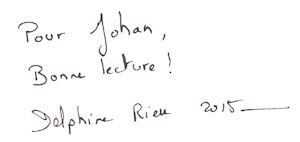 Pour Johan,
Bonne lecture !
Delphine Rieu 2015